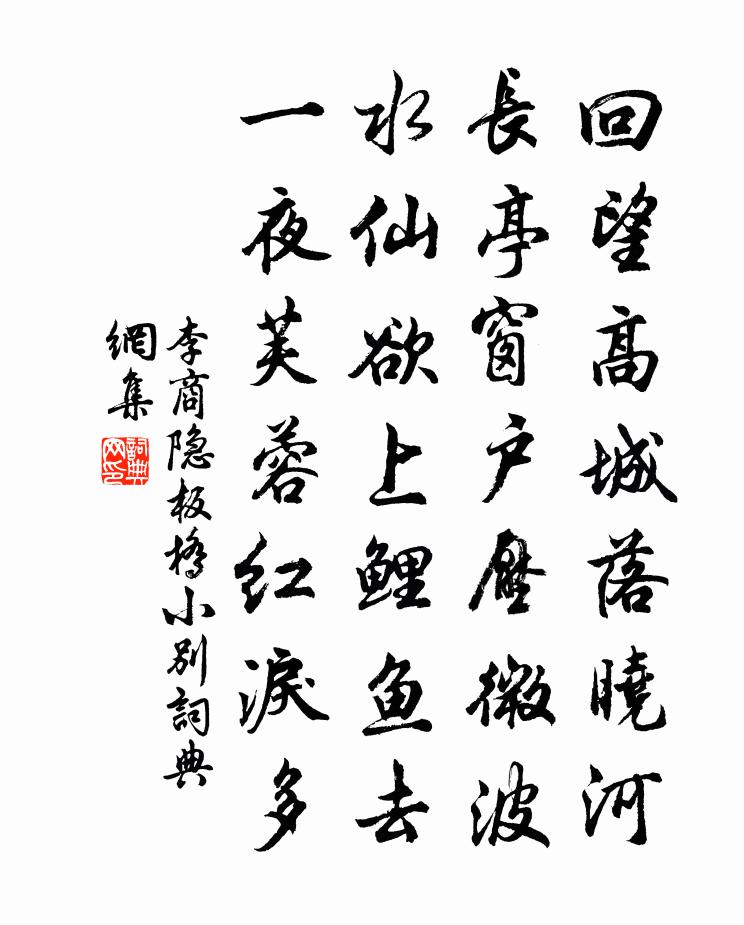 回望高城落曉河
長亭窗户壓微波
水仙欲上鲤鱼去
一夜芙蓉红淚多
李商隐板橋小别詞典
網集
詞典
网印